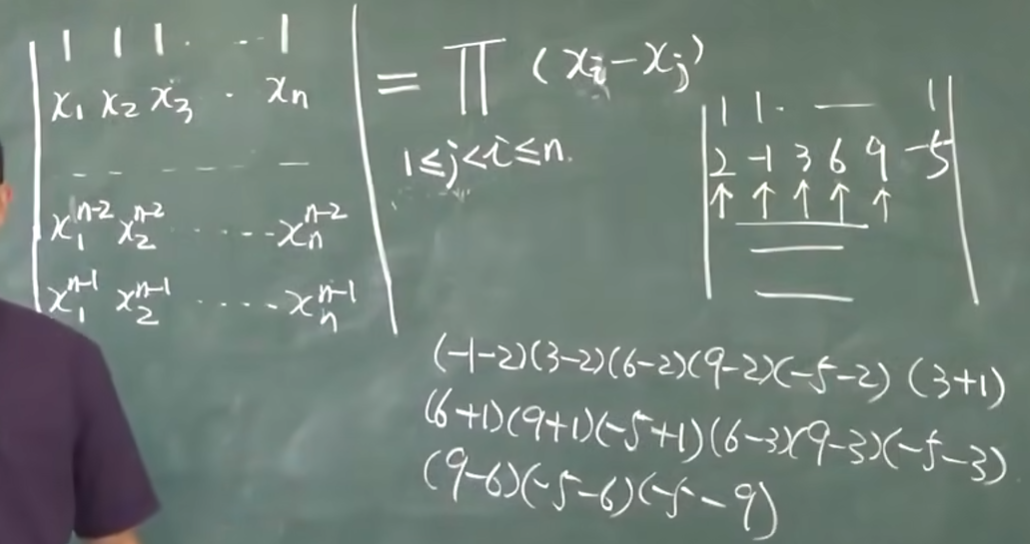 | 1 1 1 · ·-- 1 |
| x₁ x₂ x₃ · xₙ | = ∏ (xᵢ-xⱼ)
1≤j<i≤n.
-- -- -- -- --
x₁ⁿ⁻² x₂ⁿ⁻² ······ xₙⁿ⁻²
x₁ⁿ⁻¹ x₂ⁿ⁻¹ ····· xₙⁿ⁻¹
| 1 1 · — 1 |
| 2 -1 3 6 9 -5 |
↑ ↑ ↑ ↑ ↑
(-1-2)(3-2)(6-2)(9-2)(-5-2) (3+1)
(6+1)(9+1)(-5+1)(6-3)(9-3)(-5-3)
(9-6)(-5-6)(-5-9)